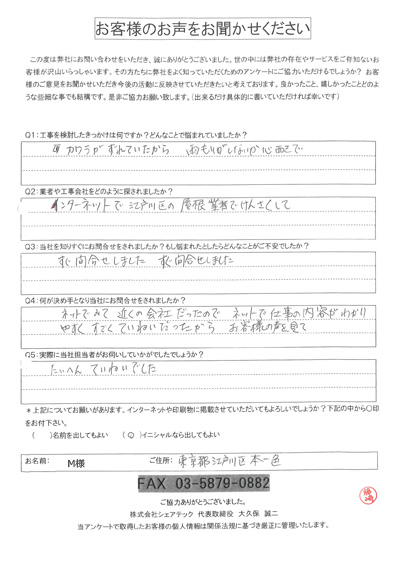 お客様のお声をお聞かせください
この度は弊社にお問い合わせをいただき、誠にありがとうございました。世の中には弊社の存在やサービスをご存知ないお
客様が沢山いらっしゃいます。その方たちに弊社をよく知っていただくためのアンケートにご協力いただけるでしょうか？お客
様のご意見をお聞かせいただき今後の活動に反映させていただきたいと考えております。良かったこと、嬉しかったことどのよ
うな些細な事でも結構です。是非ご協力お願い致します。（出来るだけ具体的に書いていただければ幸いです）
Q1:工事を検討したきっかけは何ですか？どんなことで悩まれていましたか？
カワラがずれていたから あまもりがしないか心配で
Q2:業者や工事会社をどのように探されましたか？
インターネットで江戸川区の屋根業者でけんさくして
Q3:当社を知りすぐにお問合せをされましたか？もし悩まれたとしたらどんなことがご不安でしたか？
すぐ問合せしました すぐ問合せしました
Q4:何が決め手となり当社にお問合せをされましたか？
ネットでみて近くの会社だったので ネットで仕事の内容がわかり
やすく すごくていねいだったから お客様の声を見て
Q5:実際に当社担当者がお伺いしていかがでしたでしょうか？
たいへん ていねいでした
＊上記についてお願いがあります。インターネットや印刷物に掲載させていただいてもよろしいでしょうか？下記の中から〇印
をお付下さい。
（ ）名前を出してもよい （〇）イニシャルなら出してもよい
お名前: M様 ご住所: 東京都江戸川区本一色
FAX 03-5879-0882
ご協力ありがとうございました。
株式会社シェアテック 代表取締役 大久保 誠二
当アンケートで取得したお客様の個人情報は関係法規に基づき厳正に管理いたします。